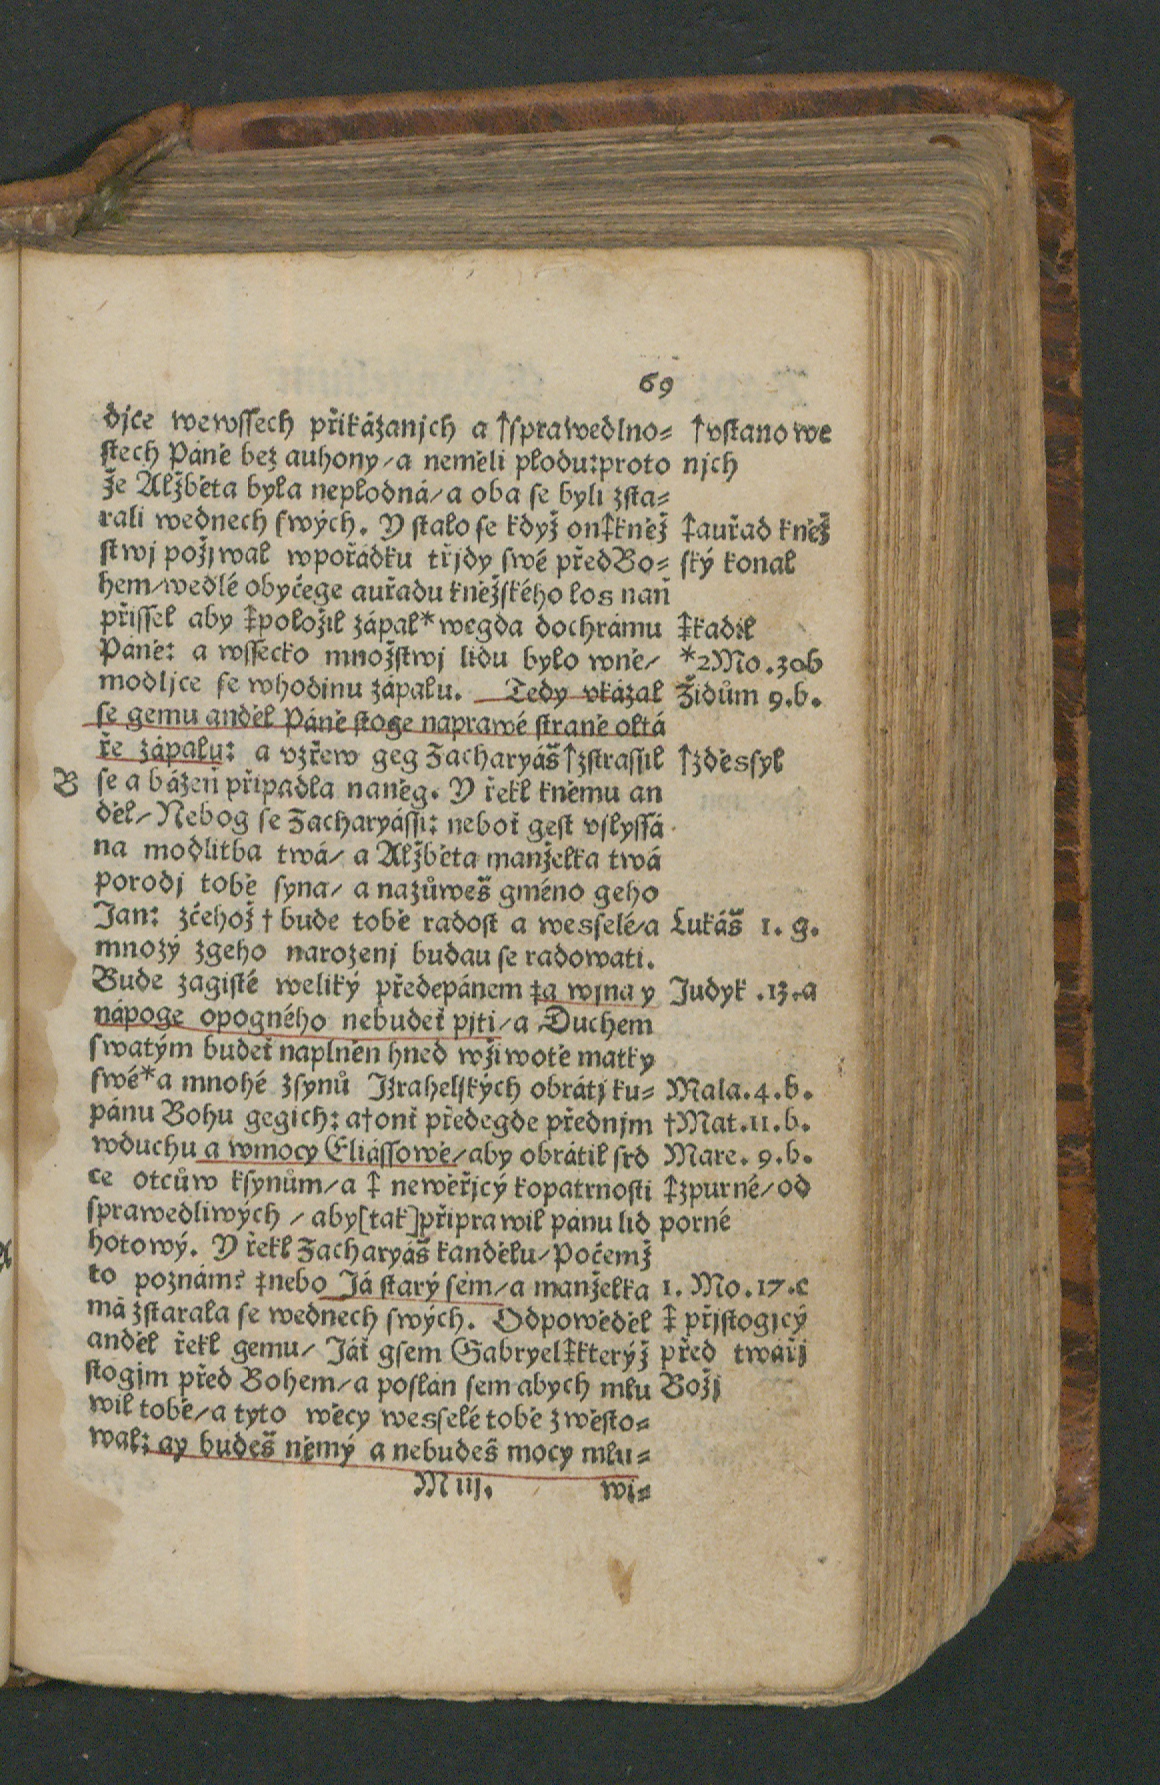 69
djce wewssech přikázanjch a †sprawedlno= †vstanowe
stech Páně bez auhony/a neměli plodu:proto njch
že Alžběta byla neplodná/a oba se byli zsta=
rali wednech swých. Y stalo se když on‡kněž ‡auřad kněž
stwj požjwal wpořádku třjdy swé předBo= ský konal
hem/wedlé obyčege auřadu kněžského los naň
přissel aby ‡položil zápal*wegda dochrámu ‡kadil
Páně: a wssecko množstwj lidu bylo wně/ *2Mo.30b
modljce se whodinu zápalu. Tedy vkázal Židům 9.b.
se gemu anděl Páně stoge naprawé straně oltá
ře zápalu: a vzřew geg Zacharyáš†zstrassil †zděssyl
B se a bázeň připadla naněg. Y řekl kněmu an
děl/Nebog se Zacharyássi: neboť gest vslyssá
na modlitba twá/ a Alžběta manželka twá
porodj tobě syna/ a nazůweš gméno geho
Jan: zčehož † bude tobě radost a wesselé/a Lukáš 1. g.
mnozý zgeho narozenj budau se radowati.
Bude zagisté weliký předepánem ‡a wjna y Judyk .13.a
nápoge opogného nebudeť pjti/a Duchem
swatým budeť naplněn hned wžiwotě matky
swé*a mnohé zsynů Izrahelských obrátj ku= Mala.4.b.
pánu Bohu gegich: a†onť předegde přednjm †Mat.11.b.
wduchu a wmocy Eliássowě/aby obrátil srd Mare. 9.b.
ce otcůw ksynům/a ‡ newěřjcý kopatrnosti ‡zpurné/od
sprawedliwých /aby[tak]připrawil pánu lid porné
hotowý. Y řekl Zacharyáš kandělu/Počemž
to poznám? ‡nebo Já starý sem/a manželka 1. Mo.17.c
má zstarala se wednech swých. Odpowěděl ‡ přjstogjcý
anděl řekl gemu/ Jáť gsem Gabryel‡kterýž před twářj
stogjm před Bohem/a poslán sem abych mlu Božj
wil tobě/a tyto wěcy wesselé tobě zwěsto=
wal: ay budeš němý a nebudeš mocy mlu=
M iij. wi=